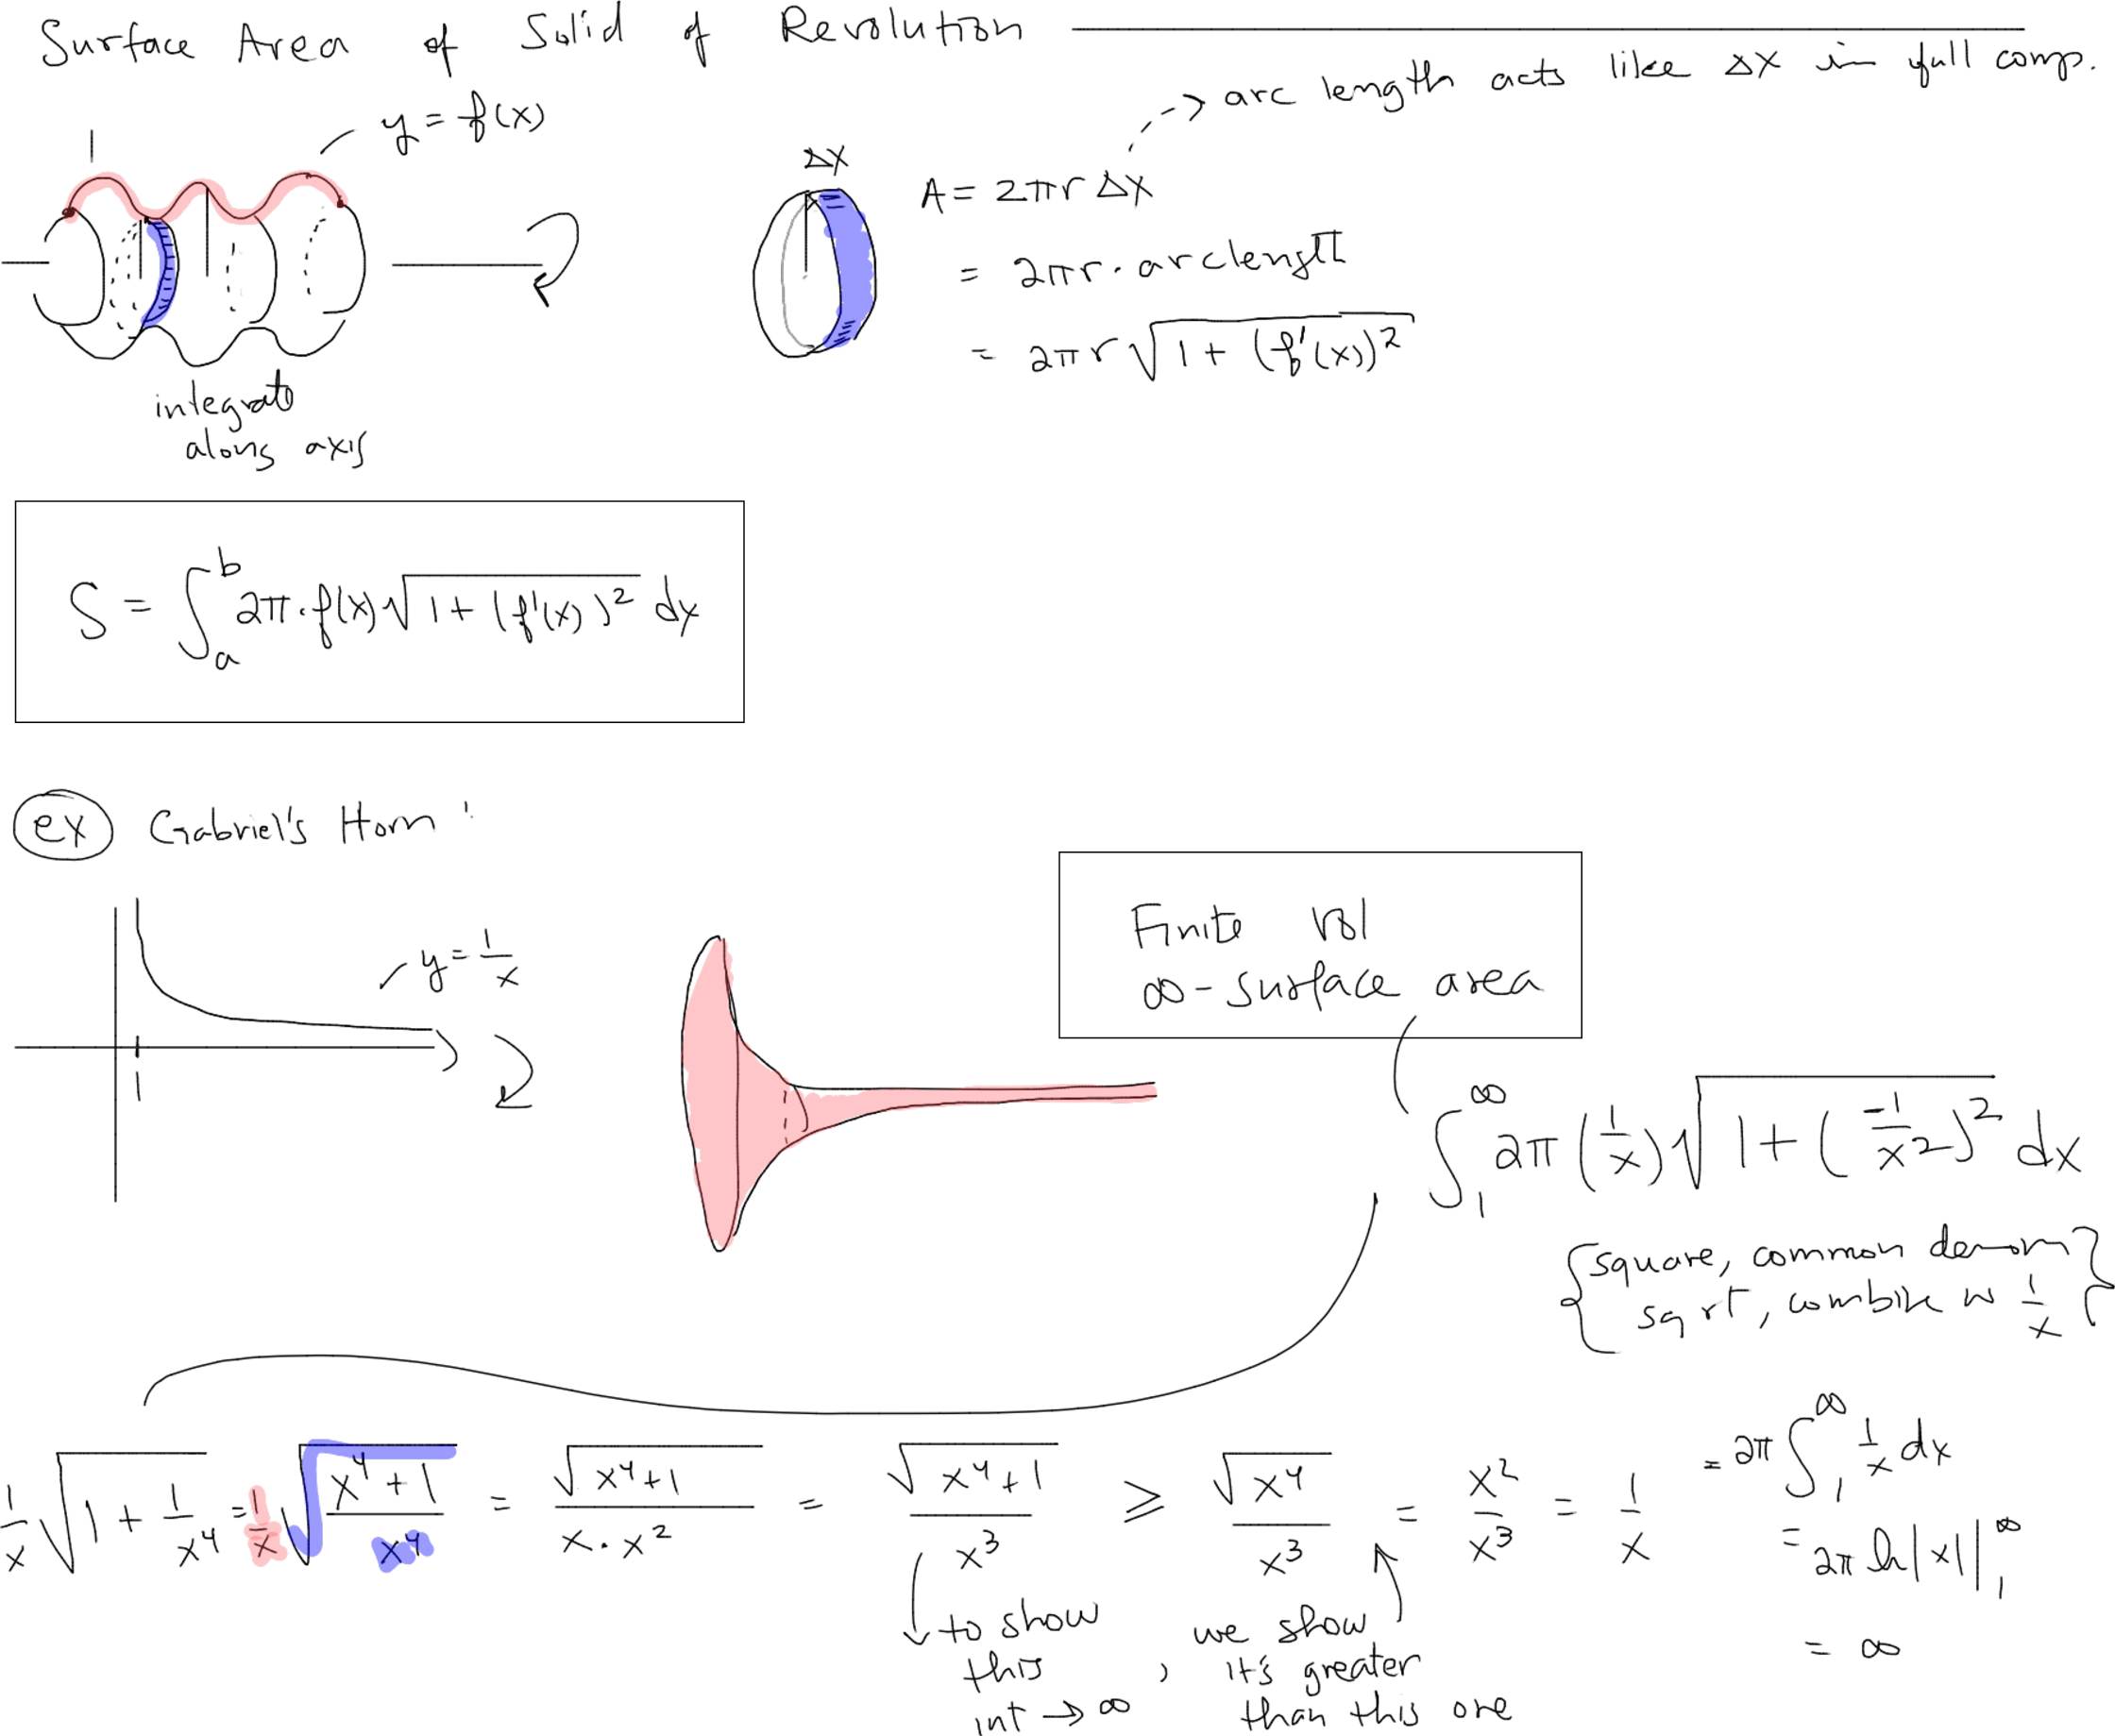 Surface Area of Solid of Revolution
arc length acts like Δx in full comp.
y = f(x)
Δx
A = 2πr Δx
= 2πr · arclength
= 2πr √(1 + (f'(x))²)
integrate
along axis
S = ∫_a^b 2π·f(x) √(1 + (f'(x))²) dx
ex Gabriel's Horn
y = 1/x
1
Finite vol
∞-surface area
∫_1^∞ 2π (1/x) √(1 + (-1/x²)²) dx
{square, common denom
sqrt, combine w 1/x}
1/x √(1 + 1/x⁴) = 1/x √((x⁴+1)/x⁴) = √(x⁴+1)/(x·x²) = √(x⁴+1)/x³ ≥ √(x⁴)/x³ = x²/x³ = 1/x
= 2π ∫_1^∞ 1/x dx
= 2π ln|x| |_1^∞
= ∞
to show
this
int → ∞
, we show
it's greater
than this one